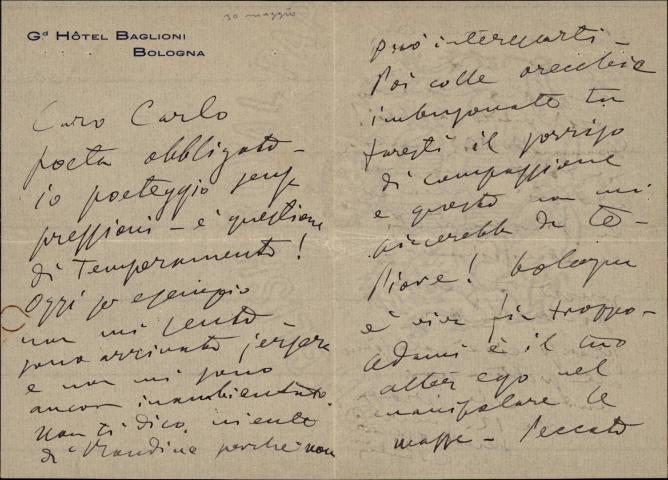 30 maggio
Gd HÔTEL BAGLIONI
BOLOGNA
Caro Carlo
poeta obbligato –
io poeteggio senza
pressioni – è questione
di Temperamento!
Oggi per esempio
non mi sento
sono arrivato jersera
e non mi sono
ancora inambientato.
Non ti dico niente
di Rondine perchè non
può interessarti –
Poi colle orecchie
imbugonate tu
faresti il sorriso
di compassione
e questo non mi
piacerebbe da te –
Piove! Bologna
è viva fin troppo –
Adami è il tuo
alter ego nel
manipolare le
masse – Peccato